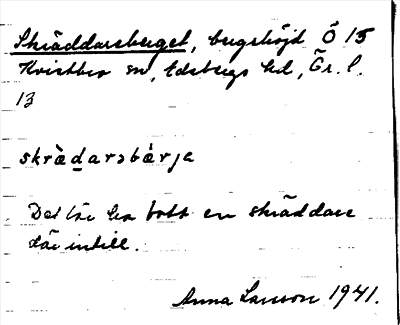 Skräddareberget, bergshöjd Ö 15
Kvistbro sn, Edsbergs hd, Ör. l.
13
skrä̀darəbärja
Det lär ha bott en skräddare
där intill.
Anna Larsson 1941.